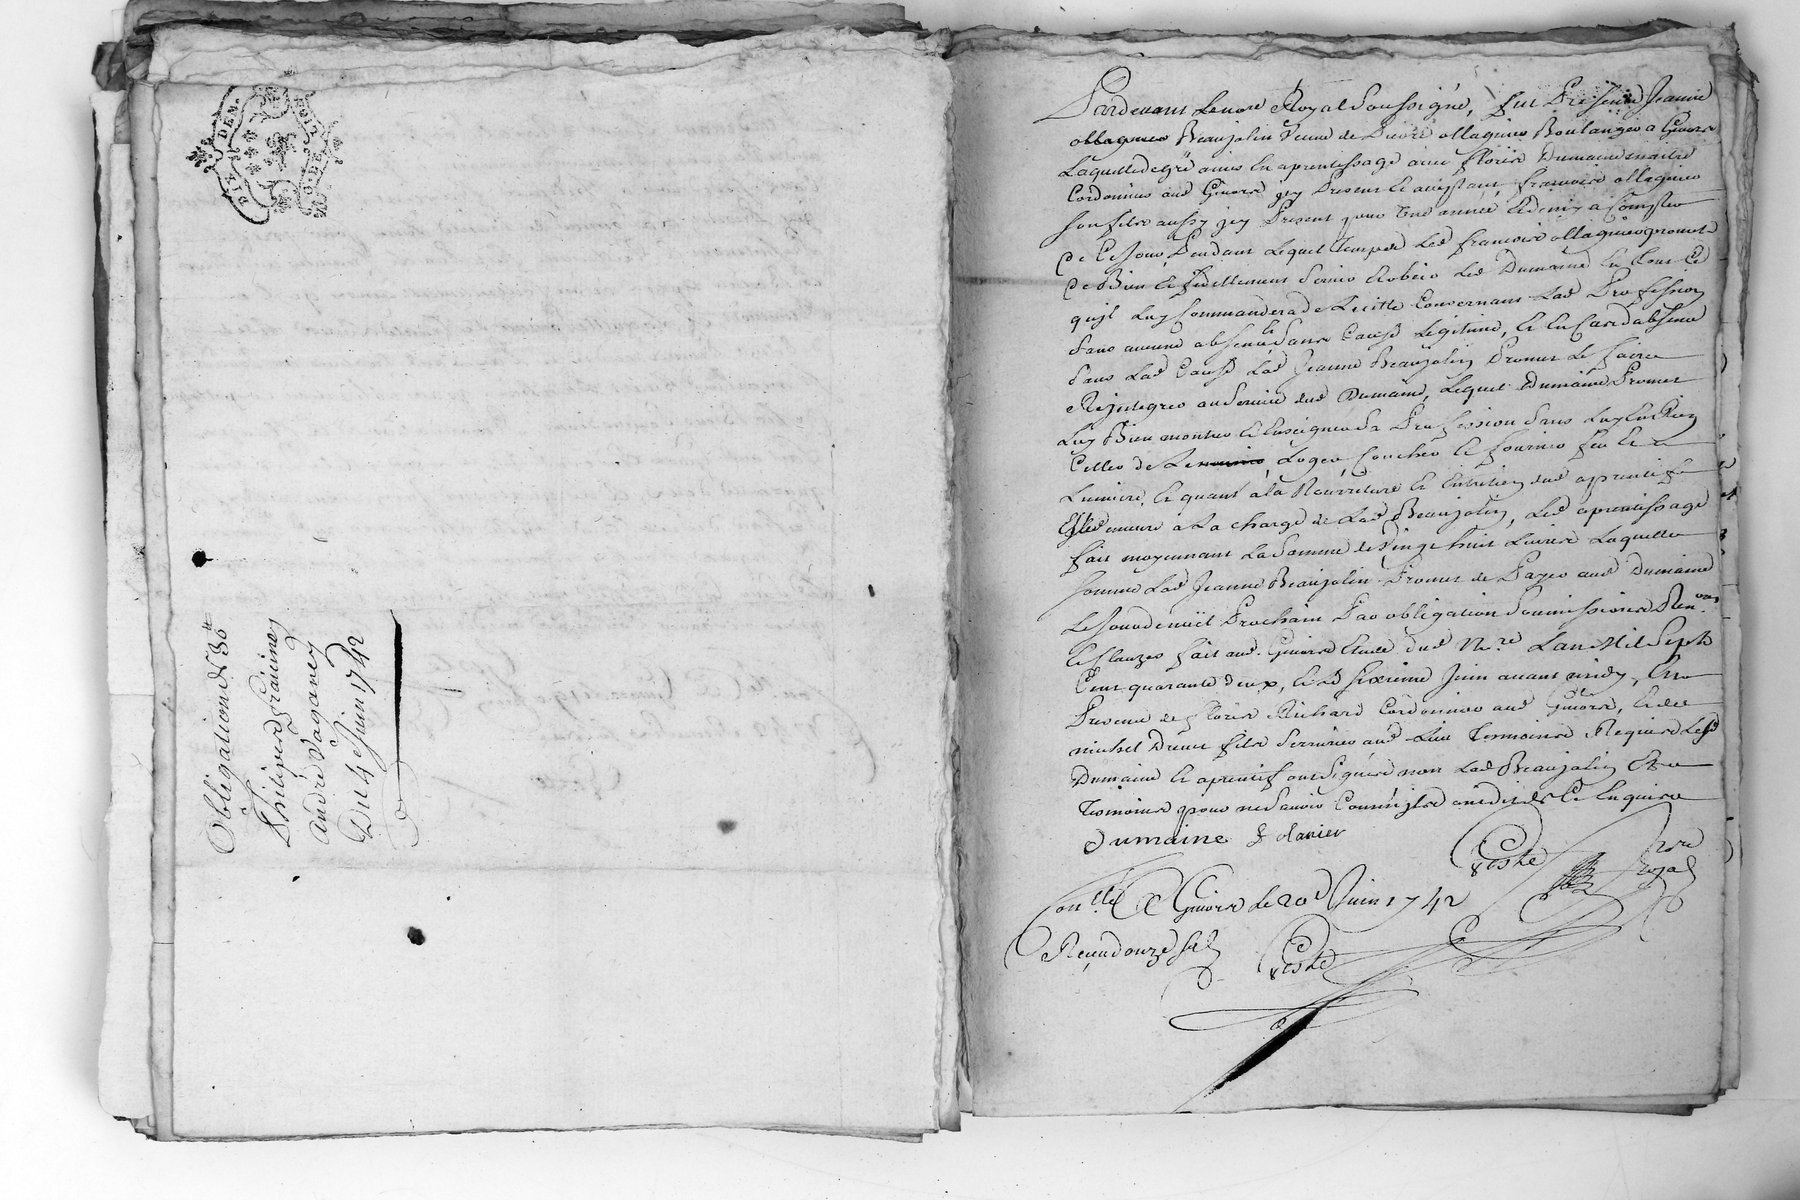 DIX DEN.
G. DE LIO
Obligation de 36 ₶
Philipe Grainieu
André Paganey
Du 4e Juin 1742
Pardevant Le no.re Royal Soussigné, fut Presente Jeanne
ollagnier Beaujolin veuve de Pierre ollagnier Boulanger a Givors
Laquelle de gré a mis En aprentissage avec fleurie Dumaine maitre
Cordonnier aud Givors icy Present et aceptant, françois ollagnier
son fils aussy icy Present pour une année Et demiy a Compter
De Ce Jour, Pendant Lequel Temps Led françois ollagnier promet
De Bien et fidellement Servir Et obeir Led Dumaine En tout Ce
qu'il Luy Commandera de Licitte Concernant Lad Profession
Sans aucune absence, Sans Cause Legitime, et En Cas d'absence
Sans Lad Cause Lad Jeanne Beaujolin Promet Le faire
Rejntegrer au Service dud Dumaine, Lequel Dumaine Promet
Luy Bien montrer et Enseigner Sa Profession Sans Luy En Rien
Celler de Le Loger Coucher et fournir feu et
Lumiere, et quant á la Nourriture et Entretien dud aprentif
Est demeuré á La charge de Lad Beaujolin, Led aprentissage
fait moyennant La Somme de Vingt huit Livres Laquelle
somme Lad Jeanne Beaujolin Promet de Payer aud Dumaine
Le Jour de noël Prochain Par obligation Soumissions Ren.ons
et Clauzes fait aud. Givors Etude dud N.re Lan Mil Sept
Cent quarante deux, et Le Sixieme Juin avant midy, En
Presence de fleurie Richard Cordonnier aud Givors, et de
michel Drevet fils Serrurier aud Lieu Temoins Requis Led
Dumaine et aprentif ont Signés non Lad Beaujolin Et
Temoins pour ne Savoir Comm'ils ont dit de Ce Enquis
Dumaine f olanier
Coste no.re Royal
Con.llé A Givors Le 20e Juin 1742
Reçu douze sols
Coste